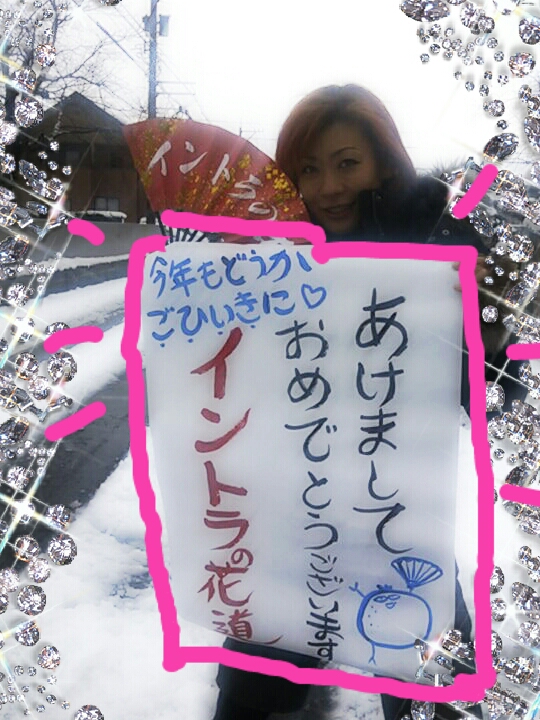 イントラの
あけまして
おめでとうございます
今年もどうか
ごひいきに♡
イントラの花道